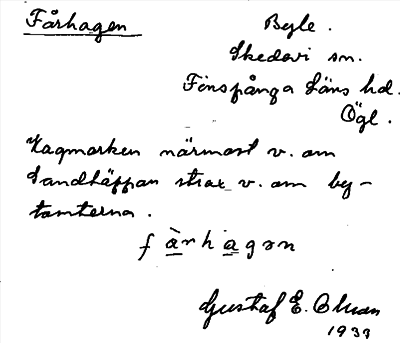 Fårhagen
Byle.
Skedevi sn.
Finspånga Läns hd.
Ögl.
Hagmarken närmast v. om
Sandtäppan strax v. om by-
tomterna.
få̀rhagən
Gustaf E.
1933